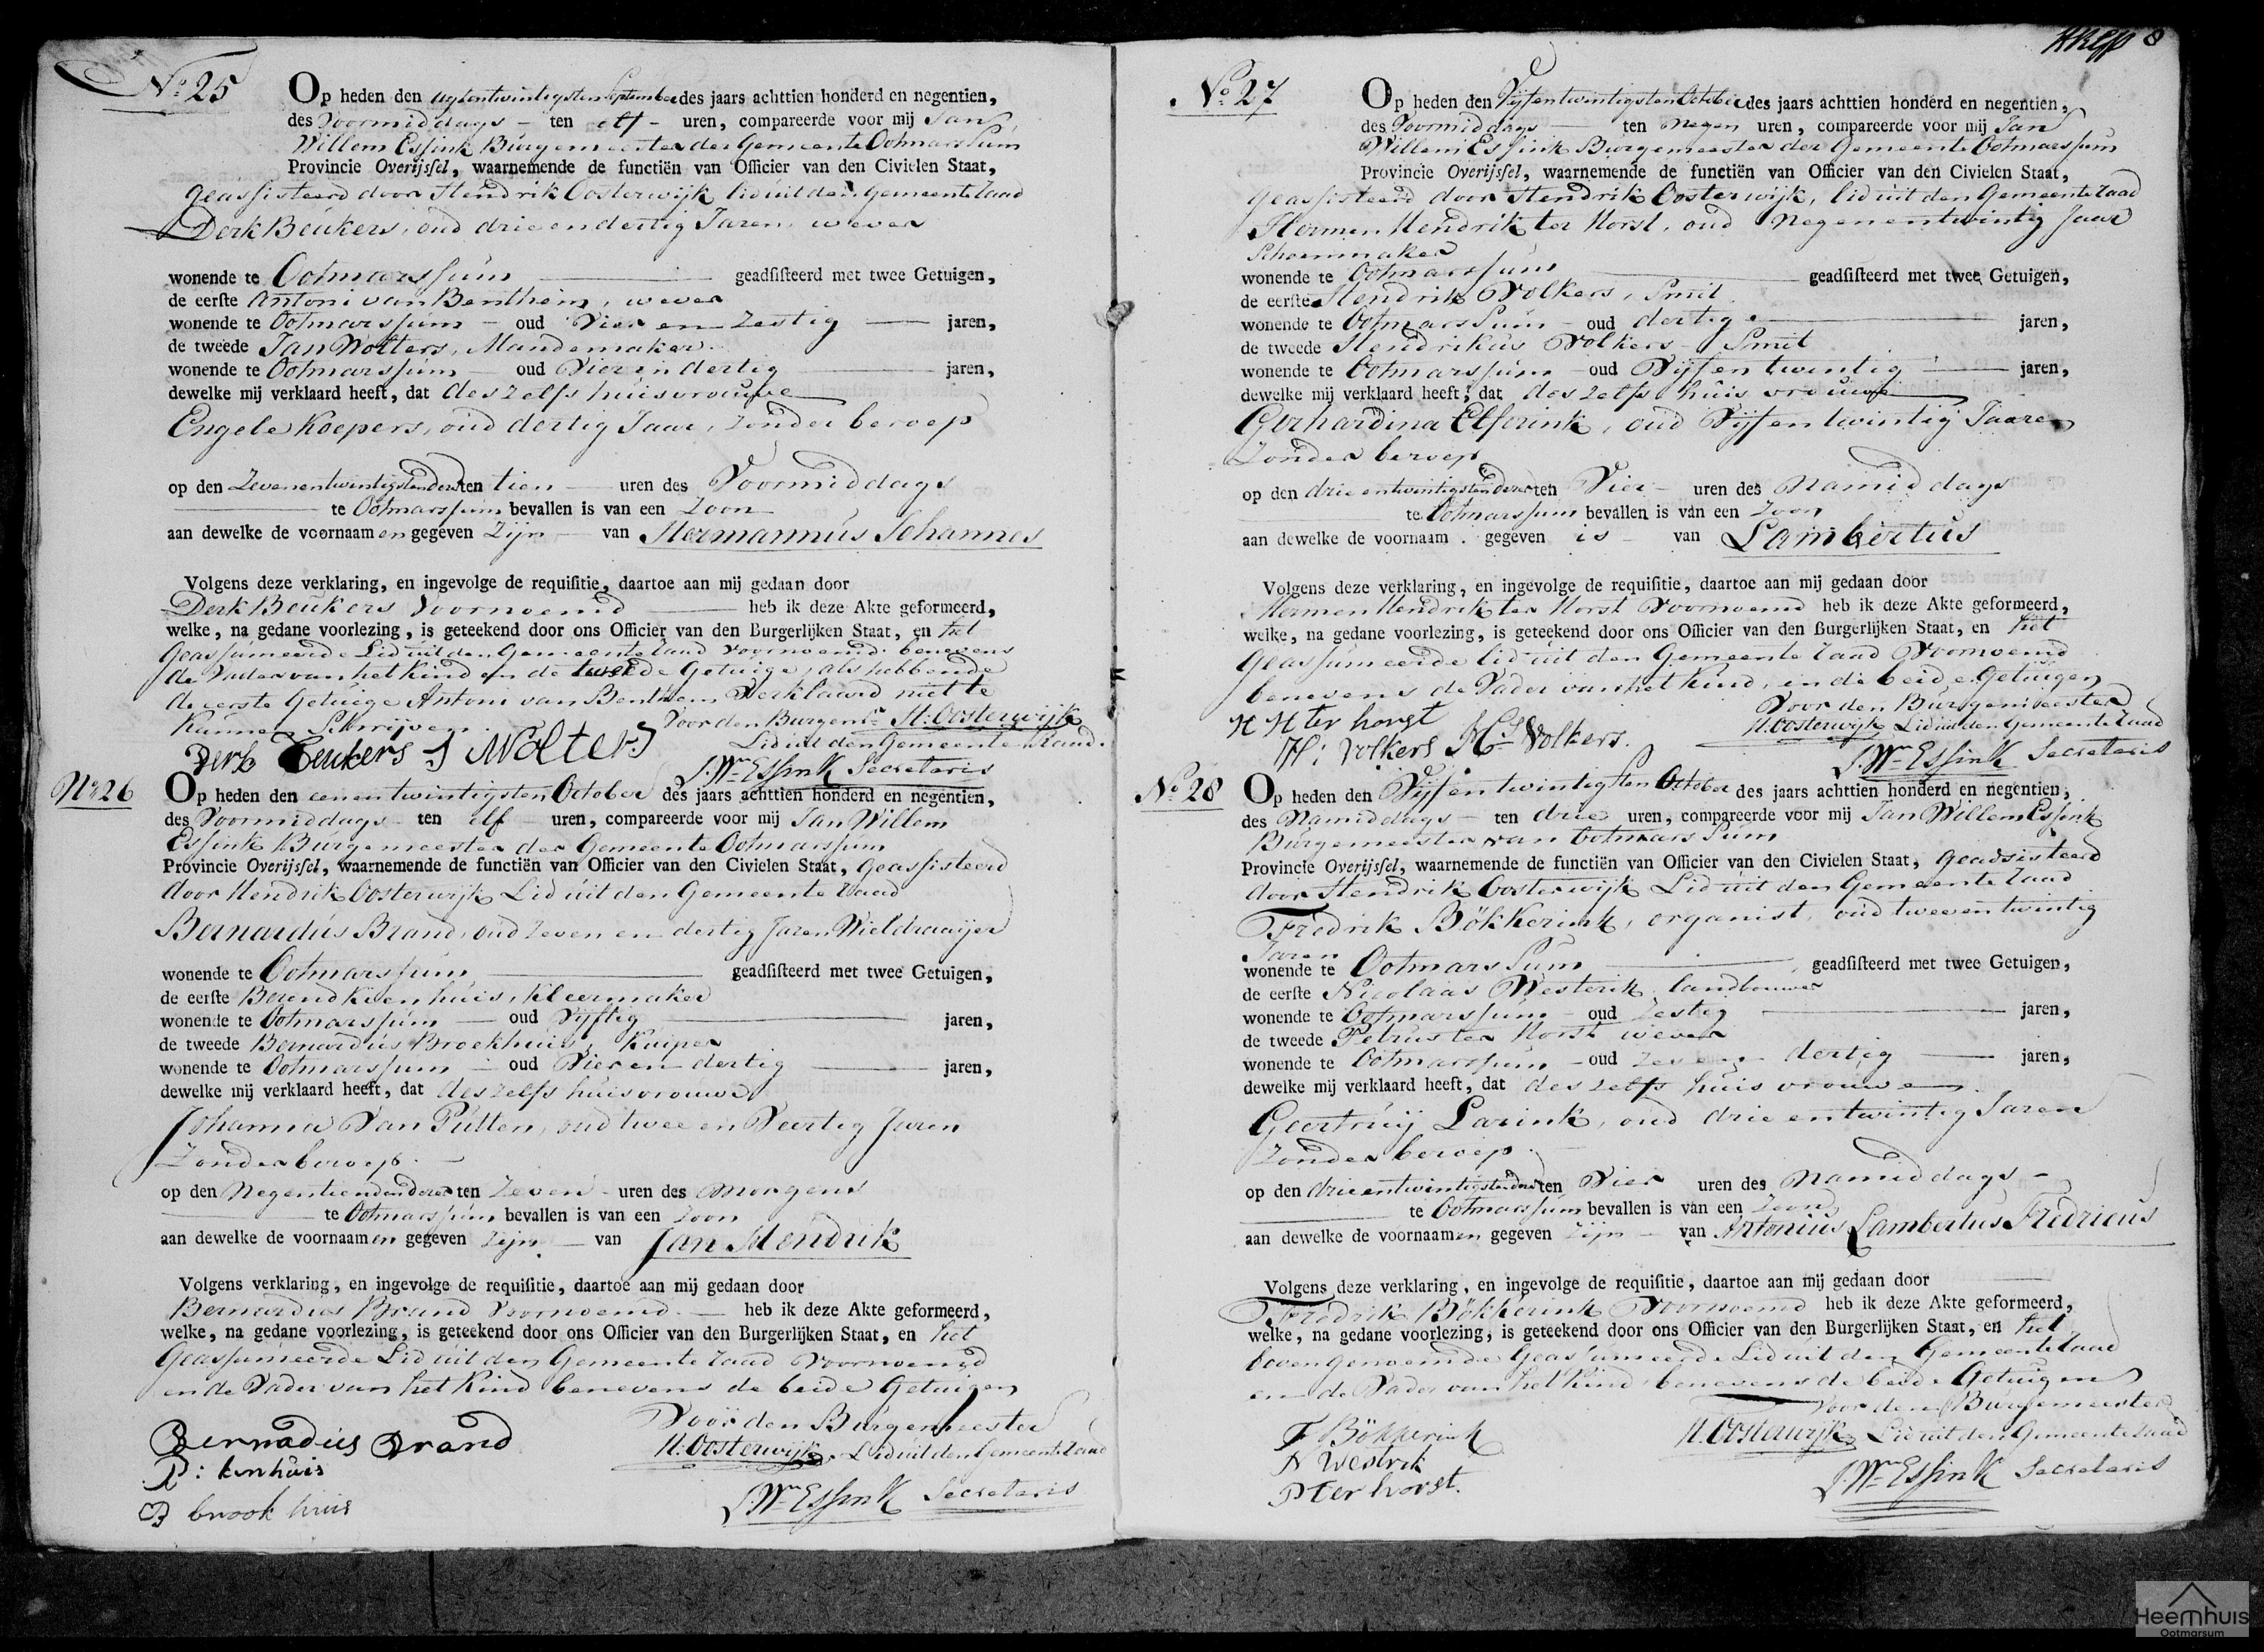 No. 25
Op heden den agtentwintigsten September des jaars achttien honderd en negentien,
des Voormiddags ten elf uren, compareerde voor mij Jan
Willem Essink Burgemeester der Gemeente Ootmarssum
Provincie Overijssel, waarnemende de functiën van Officier van den Civielen Staat,
geassisteerd door Hendrik Oosterwijk lid uit den gemeente raad
Derk Beukers, oud drie en dertig Jaren, wever
wonende te Ootmarssum geadsisteerd met twee Getuigen,
de eerste Antoni van Benthem, wever
wonende te Ootmarssum oud Vier en Zestig jaren,
de tweede Jan Wolters, Mandemaker
wonende te Ootmarssum oud Vier en dertig jaren,
dewelke mij verklaard heeft, dat deszelfs huisvrouwe
Engele Koepers, oud dertig Jaar, zonder beroep
op den Zevenentwintigsten dezer ten tien uren des Voormiddags
te Ootmarssum bevallen is van een Zoon
aan dewelke de voornaamen gegeven Zijn van Hermannus Johannes
Volgens deze verklaring, en ingevolge de requisitie, daartoe aan mij gedaan door
Derk Beukers Voornoemd heb ik deze Akte geformeerd,
welke, na gedane voorlezing, is geteekend door ons Officier van den Burgerlijken Staat, en het
Geassumeerde Lid uit den Gemeente raad voornoemd benevens
de Vader van het Kind en de tweede Getuige, als hebbende
de eerste Getuige Antoni van Benthem Verklaard niet te
Kunnen Schrijven. Voor den Burgemr. H: Oosterwijk
Lid uit den Gemeente Raad.
Derk Beukers J Wolters
J. Wm. Essink Secretaris
No. 26
Op heden den eenentwintigsten October des jaars achttien honderd en negentien,
des Voormiddags ten elf uren, compareerde voor mij Jan Willem
Essink Burgemeester der Gemeente Ootmarssum
Provincie Overijssel, waarnemende de functiën van Officier van den Civielen Staat, geassisteerd
door Hendrik Oosterwijk Lid uit den Gemeente raad
Bernardus Brand, oud Zeven en dertig Jaren Wieldraaijer
wonende te Ootmarssum geadsisteerd met twee Getuigen,
de eerste Berend Kienhuis, Kleermaker
wonende te Ootmarssum oud Vyftig jaren,
de tweede Bernardus Broekhuis, Kuiper
wonende te Ootmarssum oud Vier en dertig jaren,
dewelke mij verklaard heeft, dat deszelfs huisvrouwe
Johanna Van Putten, oud twee en Veertig Jaren
Zonder beroep.
op den Negentienden dezer ten Zeven uren des Morgens
te Ootmarssum bevallen is van een Zoon
aan dewelke de voornaamen gegeven Zijn van Jan Hendrik
Volgens verklaring, en ingevolge de requisitie, daartoe aan mij gedaan door
Bernardus Brand Voornoemd heb ik deze Akte geformeerd,
welke, na gedane voorlezing, is geteekend door ons Officier van den Burgerlijken Staat, en het
Geassumeerde Lid uit den Gemeente raad Voornoemd
en de Vader van het Kind benevens de beide Getuigen
Voor den Burgemeester
Bernadus Brand
H: Oosterwijk, Lid uit den Gemeente raad
B: kinhuis
J. Wm. Essink Secretaris
B brook huis
8
No. 27
Op heden den Vijfentwintigsten October des jaars achttien honderd en negentien,
des Voormiddags ten negen uren, compareerde voor mij Jan
Willem Essink Burgemeester der Gemeente Ootmarssum
Provincie Overijssel, waarnemende de functiën van Officier van den Civielen Staat,
geassisteerd door Hendrik Oosterwijk, lid uit den Gemeente raad
Hermen Hendrik ter Horst, oud Negenentwintig Jaar
Schoenmaker
wonende te Ootmarssum geadsisteerd met twee Getuigen,
de eerste Hendrik Volkers, Smit
wonende te Ootmarssum oud dertig jaren,
de tweede Hendrikus Volkers Smit
wonende te Ootmarssum oud Vijfentwintig jaren,
dewelke mij verklaard heeft, dat deszelfs huisvrouwe
Gerhardina Elferink, oud Vijfentwintig Jaaren
Zonder beroep
op den drieentwintigsten dezer ten Vier uren des Namiddags
te Ootmarssum bevallen is van een Zoon
aan dewelke de voornaam gegeven is van Lambertus
Volgens deze verklaring, en ingevolge de requisitie, daartoe aan mij gedaan door
Hermen Hendrik ter Horst Voornoemd heb ik deze Akte geformeerd,
welke, na gedane voorlezing, is geteekend door ons Officier van den Burgerlijken Staat, en het
Geassumeerde lid uit den Gemeente raad Voornoemd
benevens de Vader van het Kind, en de beide Getuigen
Voor den Burgemeester
H H ter horst
H. Oosterwijk Lid uit den Gemeente raad
H: Volkers Hs Volkers.
J. Wm. Essink Secretaris
No. 28
Op heden den Vijfentwintigsten October des jaars achttien honderd en negentien,
des Namiddags ten drie uren, compareerde voor mij Jan Willem Essink
Burgemeester van Ootmarssum
Provincie Overijssel, waarnemende de functiën van Officier van den Civielen Staat, geadsisteerd
door Hendrik Oosterwijk Lid uit den Gemeente raad
Fredrik Bökkerink, organist, oud tweeentwintig
Jaren
wonende te Ootmarssum geadsisteerd met twee Getuigen,
de eerste Nicolaas Westerik landbouwer
wonende te Ootmarssum oud Zestig jaren,
de tweede Petrus ter Horst wever
wonende te Ootmarssum oud Zeven dertig jaren,
dewelke mij verklaard heeft, dat deszelfs huisvrouwe
Geertruij Larink, oud drieentwintig Jaren
Zonder beroep.
op den drieentwintigsten dezer ten Vier uren des Namiddags
te Ootmarssum bevallen is van een Zoon
aan dewelke de voornaamen gegeven Zijn van Antonius Lambertus Fredricus
Volgens deze verklaring, en ingevolge de requisitie, daartoe aan mij gedaan door
Fredrik Bökkerink Voornoemd heb ik deze Akte geformeerd,
welke, na gedane voorlezing, is geteekend door ons Officier van den Burgerlijken Staat, en het
bovengenoemde Geassumeerde Lid uit den Gemeente raad
en de Vader van het Kind benevens de beide Getuigen
Voor den Burgemeester
F Bökkerink
H. Oosterwijk Lid uit den Gemeente raad
N Westrik
J. Wm. Essink Secretaris
P ter horst.
Heemhuis
Ootmarsum